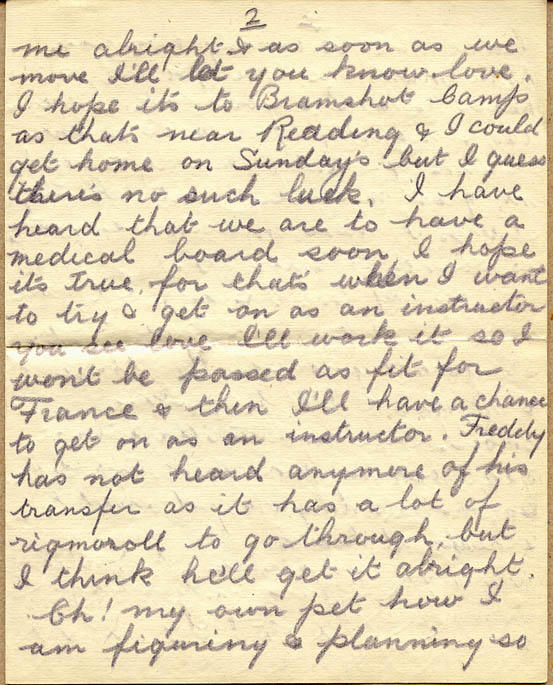 2
me alright. & as soon as we
move I'll let you know love.
I hope its to Bramshot Camp
as thats near Reading & I could
get home on Sunday's but I guess
there's no such luck. I have
heard that we are to have a
medical board soon, I hope
its true, for thats when I want
to try & get on as an instructor
you see love I'll work it so I
won't be passed as fit for
France & then I'll have a chance
to get on as an instructor. Freddy
has not heard anymore of his
transfer as it has a lot of
rigmoroll to go through, but
I think he'll get it alright.
Oh! my own pet how I
am figuring & planning so